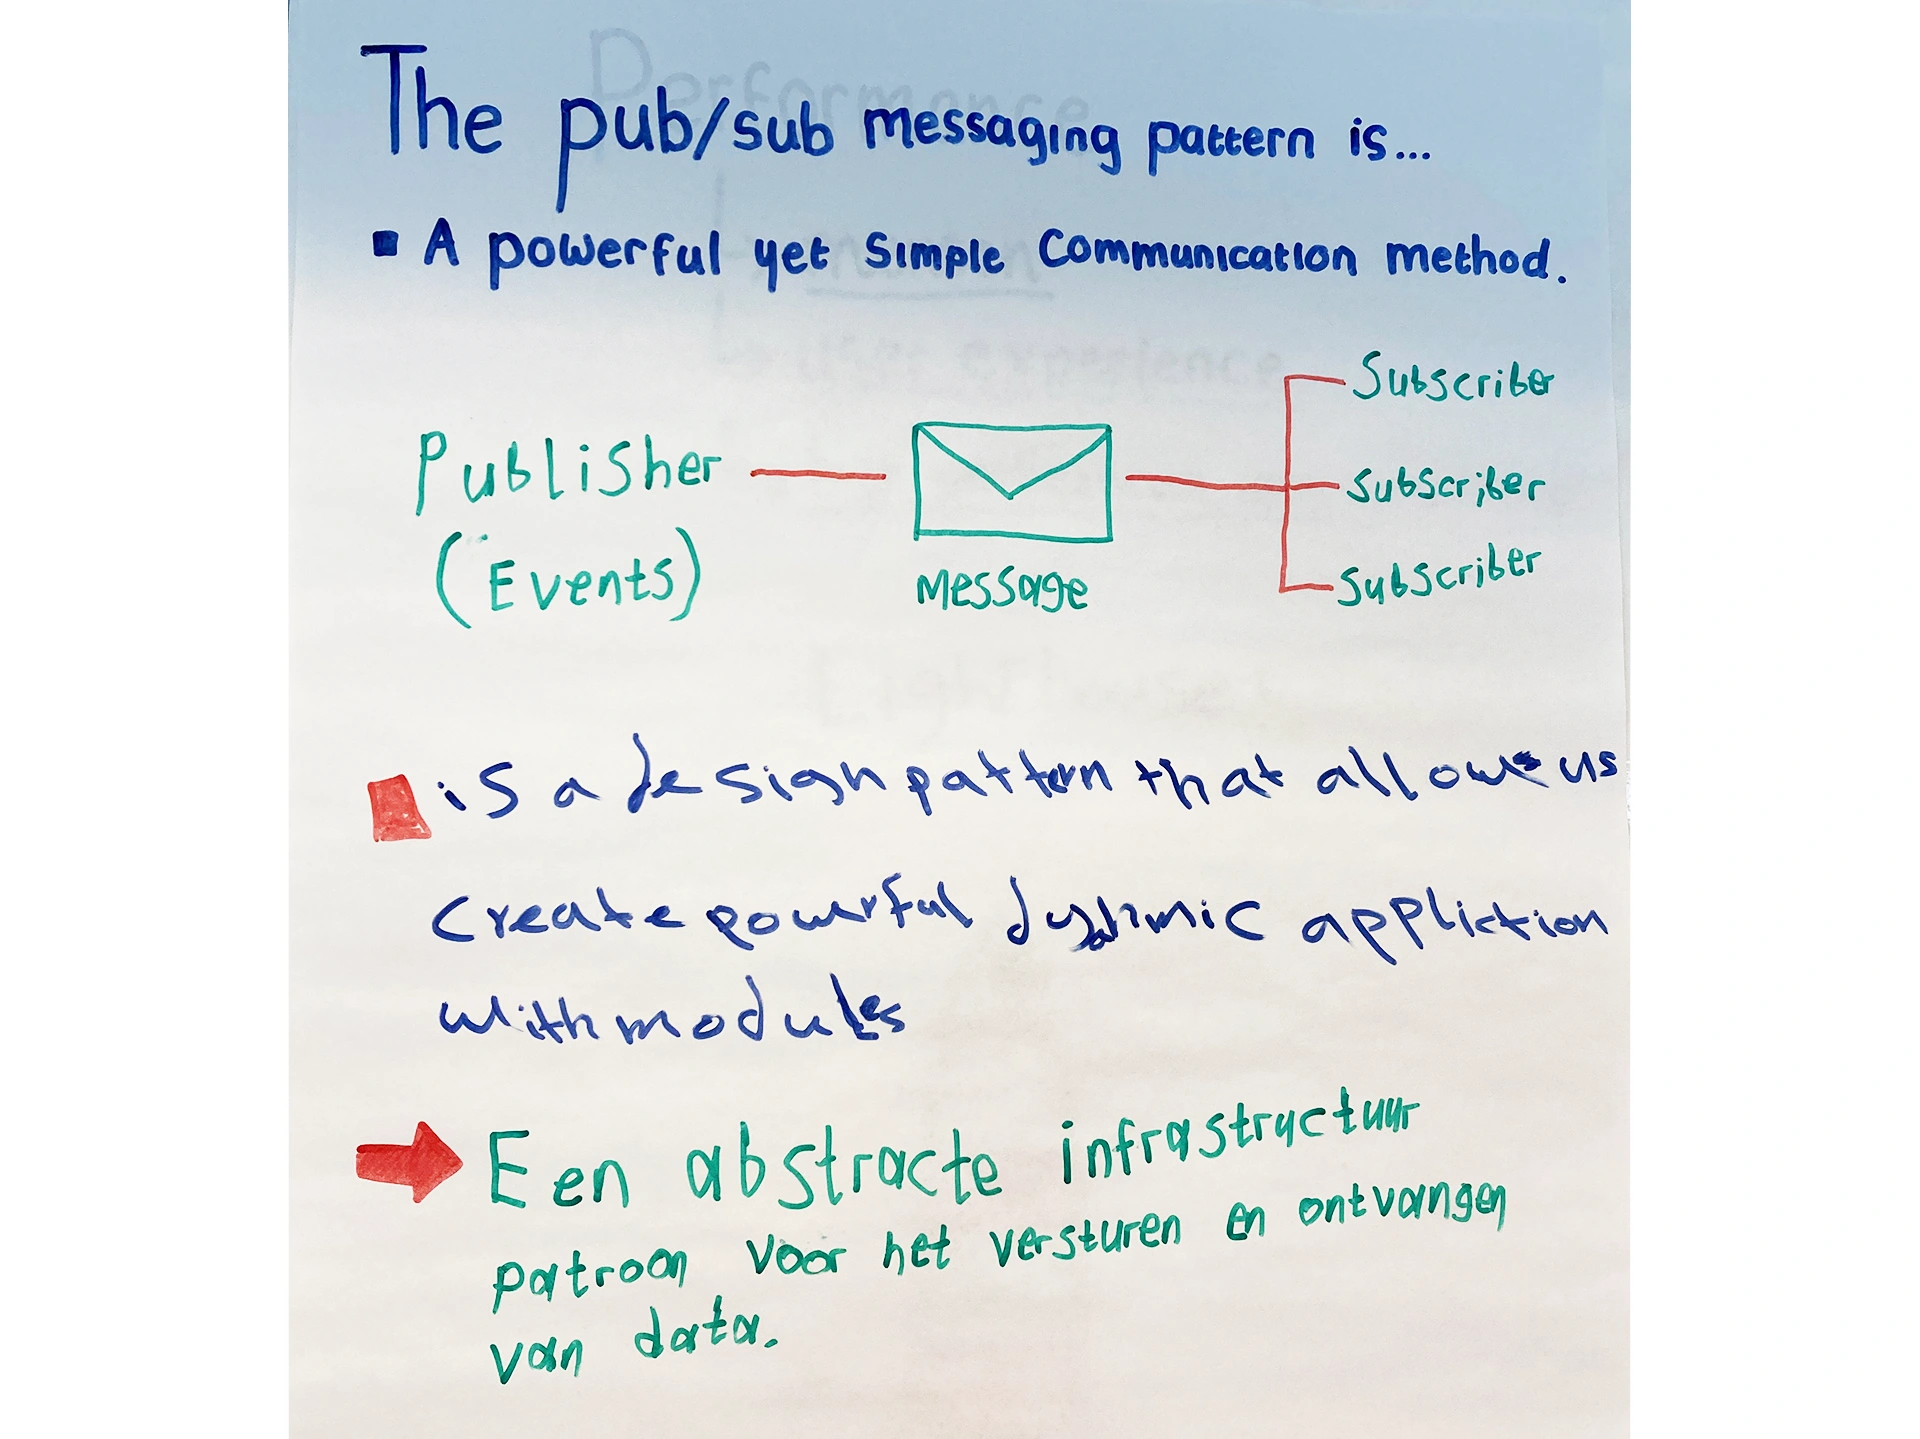 The pub/sub messaging pattern is...
A powerful yet simple communication method.
Subscriber
Publisher
Subscriber
(Events)
Message
Subscriber
is a design pattern that allows us
create powerful dynamic appliction
with modules
Een abstracte infrastructuur
patroon voor het versturen en ontvangen
van data.